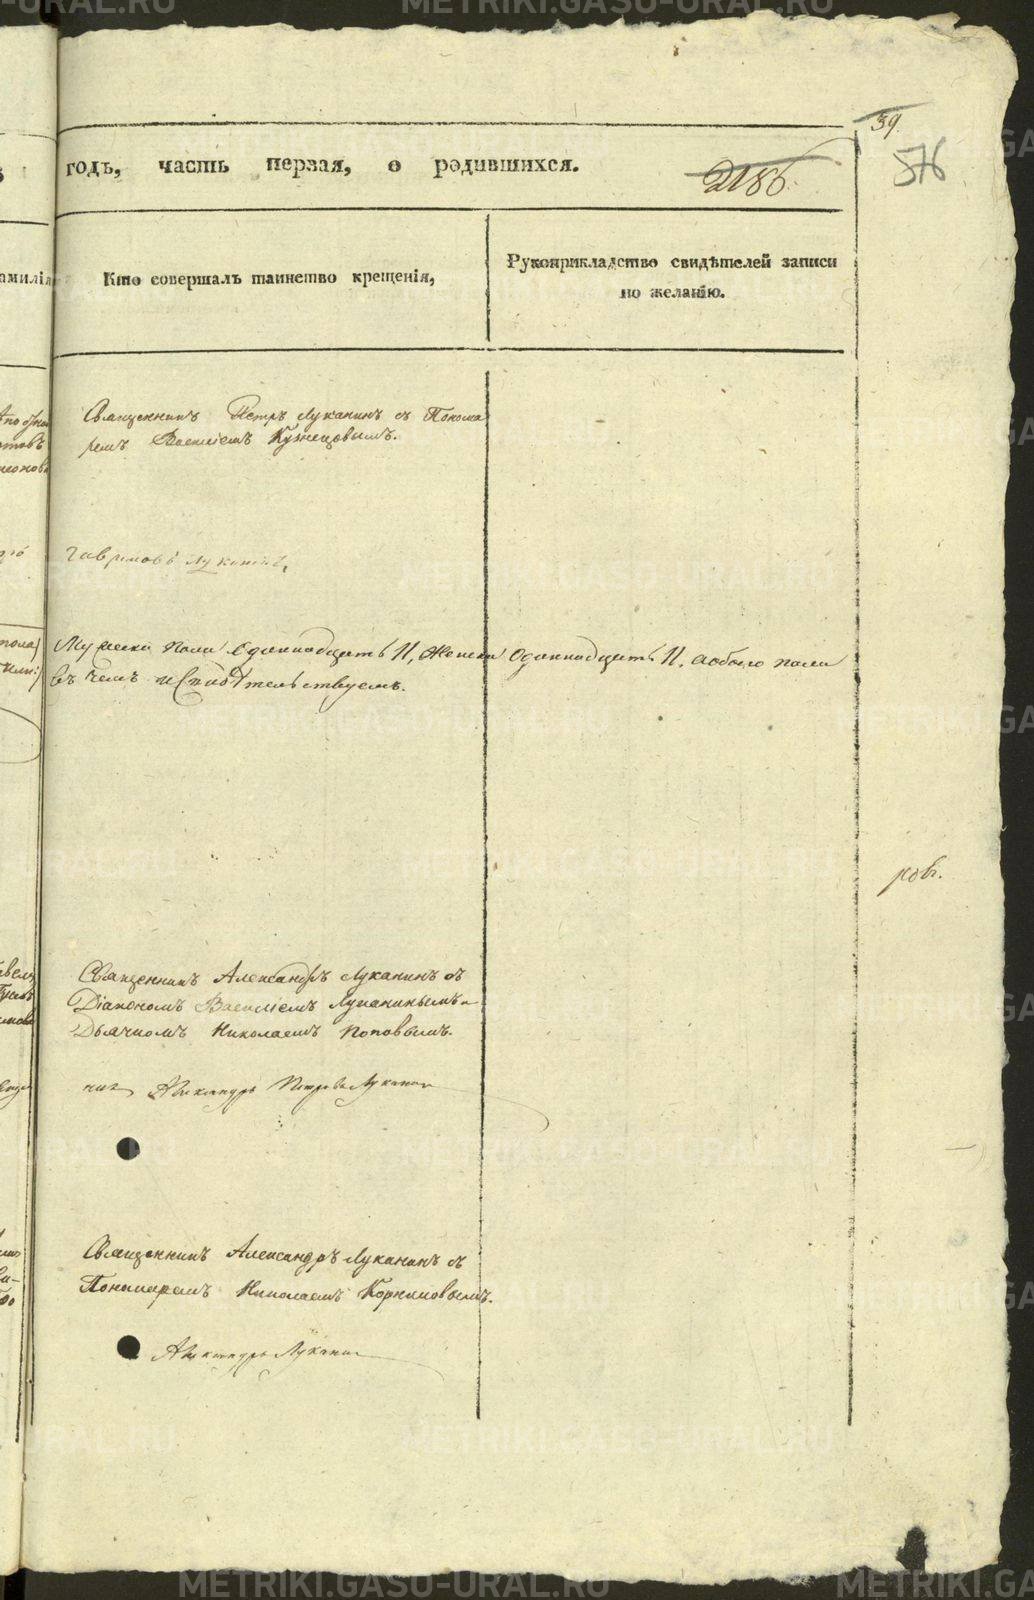 METRIKI.GASO-URAL.RU
39.
576
годъ, часть первая, о родившихся.
2186.
амилія
Кто совершалъ таинство крещенія,
Рукоприкладство свидѣтелей записи
по желанію.
Священникъ Петръ Луканинъ съ Понома
ремъ Василіемъ Кузнецовымъ.
Гавриловъ Луканинъ,
Мужеска пола Единнадцать 11, Женска Одиннадцать 11. обоего пола
въ чемъ и Свидѣтельствуемъ.
ров.
Священникъ Александръ Луканинъ съ
Діакономъ Василіемъ Луканинымъ и
Дьячкомъ Николаемъ Поповымъ.
никъ Александръ Петровъ Луканин
Священникъ Александръ Луканинъ съ
Пономаремъ Николаемъ Корниловымъ.
Александръ Луканин